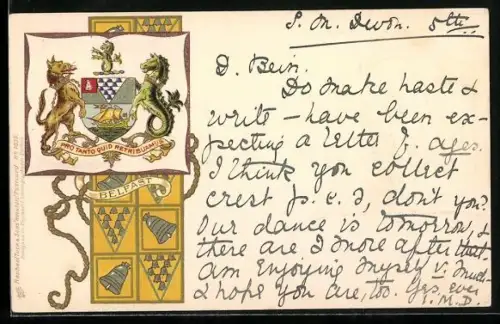 S. M. Devon. 5th
D. Bein.
Do make haste &
write – have been ex-
pecting a letter f. ages.
I think you collect
crest p.c.s, don't you?
Our dance is tomorrow, &
there are 2 more after that.
Am enjoying myself v. much
& hope you are, too. Yrs. ever
I.M.D.
PRO TANTO QUID RETRIBUAMUS
BELFAST